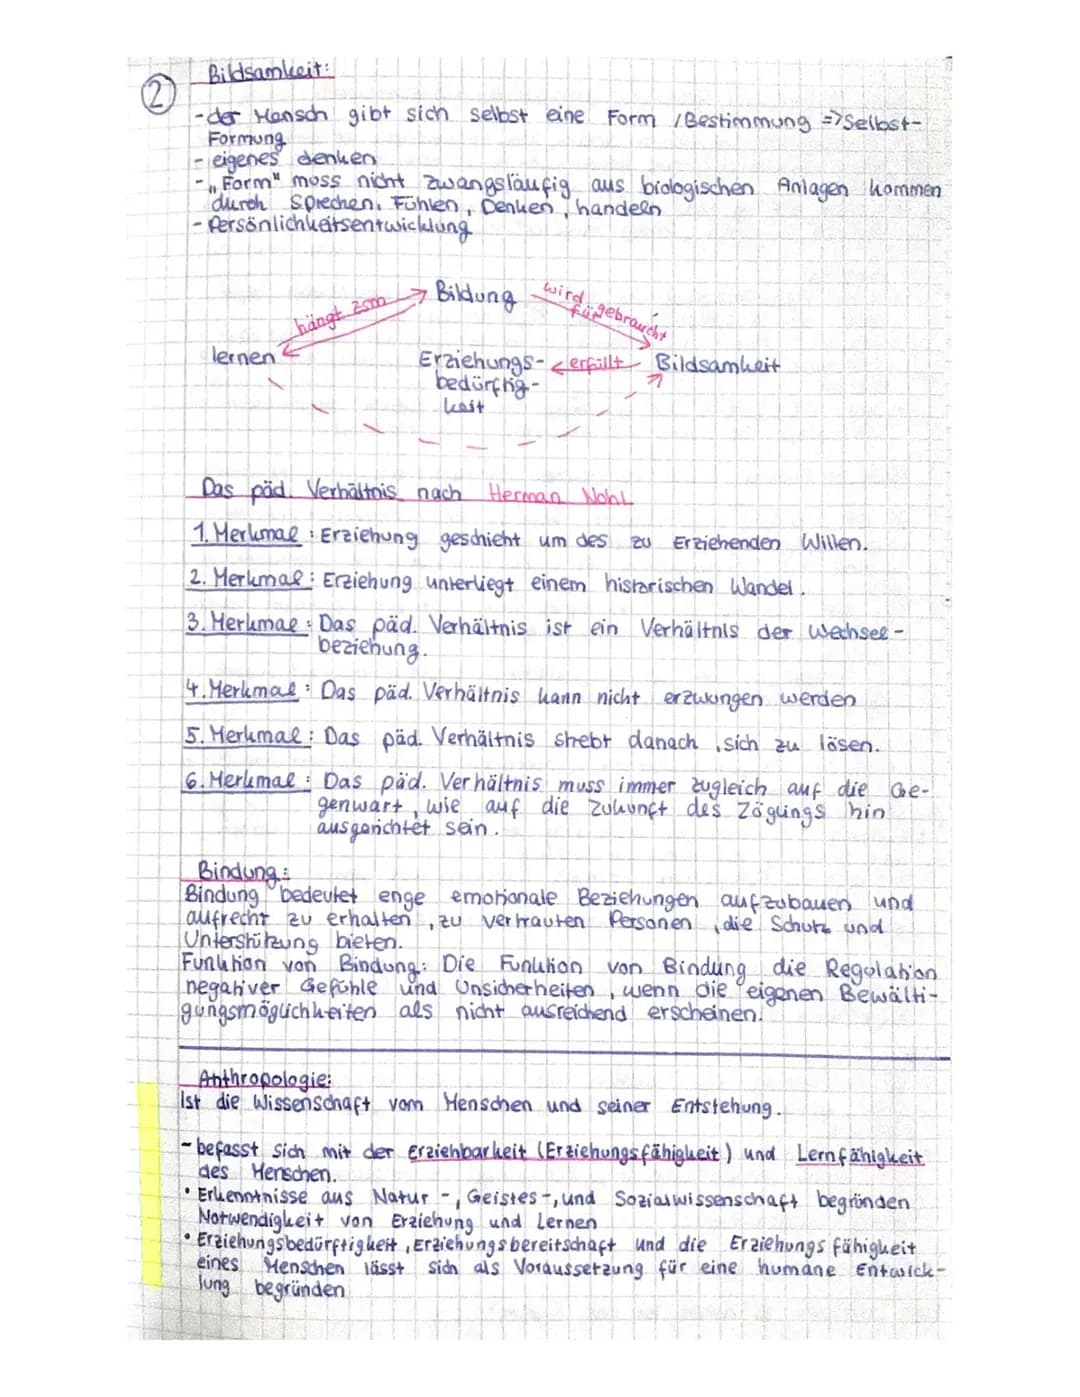 ② Bildsamkeit:
- der Mensch gibt sich selbst eine Form / Bestimmung => Selbst-
Formung
- eigenes denken
- "Form" muss nicht zwangsläufig aus biologischen Anlagen kommen
durch Sprechen, Fühlen, Denken, handeln
- Persönlichkeitsentwicklung
Bildung
wird gebraucht
für
hängt zsm
lernen
Erziehungs-
bedürftig-
keit
erfüllt
Bildsamkeit
Das päd. Verhältnis nach Herman Nohl
1. Merkmal: Erziehung geschieht um des zu Erziehenden Willen.
2. Merkmal: Erziehung unterliegt einem historischen Wandel.
3. Merkmal: Das päd. Verhältnis ist ein Verhältnis der Wechsel-
beziehung.
4. Merkmal: Das päd. Verhältnis kann nicht erzwungen werden
5. Merkmal: Das päd. Verhältnis strebt danach, sich zu lösen.
6. Merkmal: Das päd. Verhältnis muss immer zugleich auf die Ge-
genwart, wie auf die Zukunft des Zöglings hin
ausgerichtet sein.
Bindung:
Bindung bedeutet enge emotionale Beziehungen aufzubauen und
aufrecht zu erhalten, zu vertrauten Personen, die Schutz und
Unterstützung bieten.
Funktion von Bindung: Die Funktion von Bindung die Regulation
negativer Gefühle und Unsicherheiten, wenn die eigenen Bewälti-
gungsmöglichkeiten als nicht ausreichend erscheinen.
Anthropologie:
Ist die Wissenschaft vom Menschen und seiner Entstehung.
- befasst sich mit der Erziehbarkeit (Erziehungsfähigkeit) und Lernfähigkeit
des Menschen.
• Erkenntnisse aus Natur-, Geistes-, und Sozialwissenschaft begründen
Notwendigkeit von Erziehung und Lernen
• Erziehungsbedürftigkeit, Erziehungsbereitschaft und die Erziehungsfähigkeit
eines Menschen lässt sich als Voraussetzung für eine humane Entwick-
lung begründen